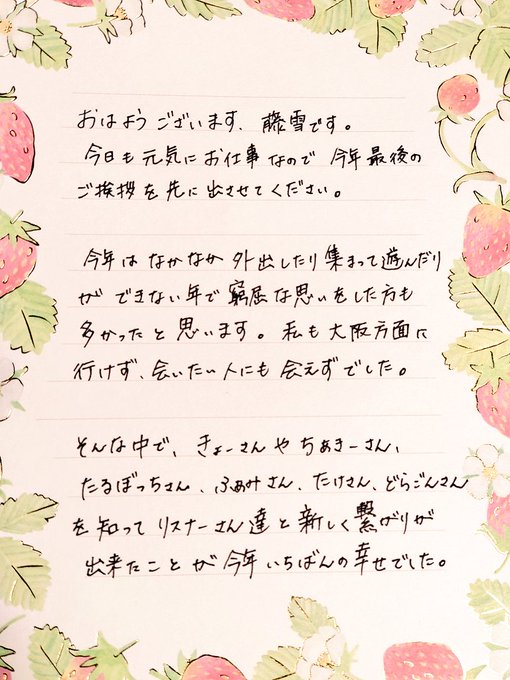 おはようございます、藤雪です。
今日も元気にお仕事なので今年最後の
ご挨拶を先に出させてください。
今年はなかなか外出したり集まって遊んだり
ができない年で窮屈な思いをした方も
多かったと思います。私も大阪方面に
行けず、会いたい人にも会えずでした。
そんな中で、きょーさんやちぁきーさん、
たるぼっちさん、ふぁみさん、たけさん、どらごんさん
を知ってリスナーさん達と新しく繋がりが
出来たことが今年いちばんの幸せでした。